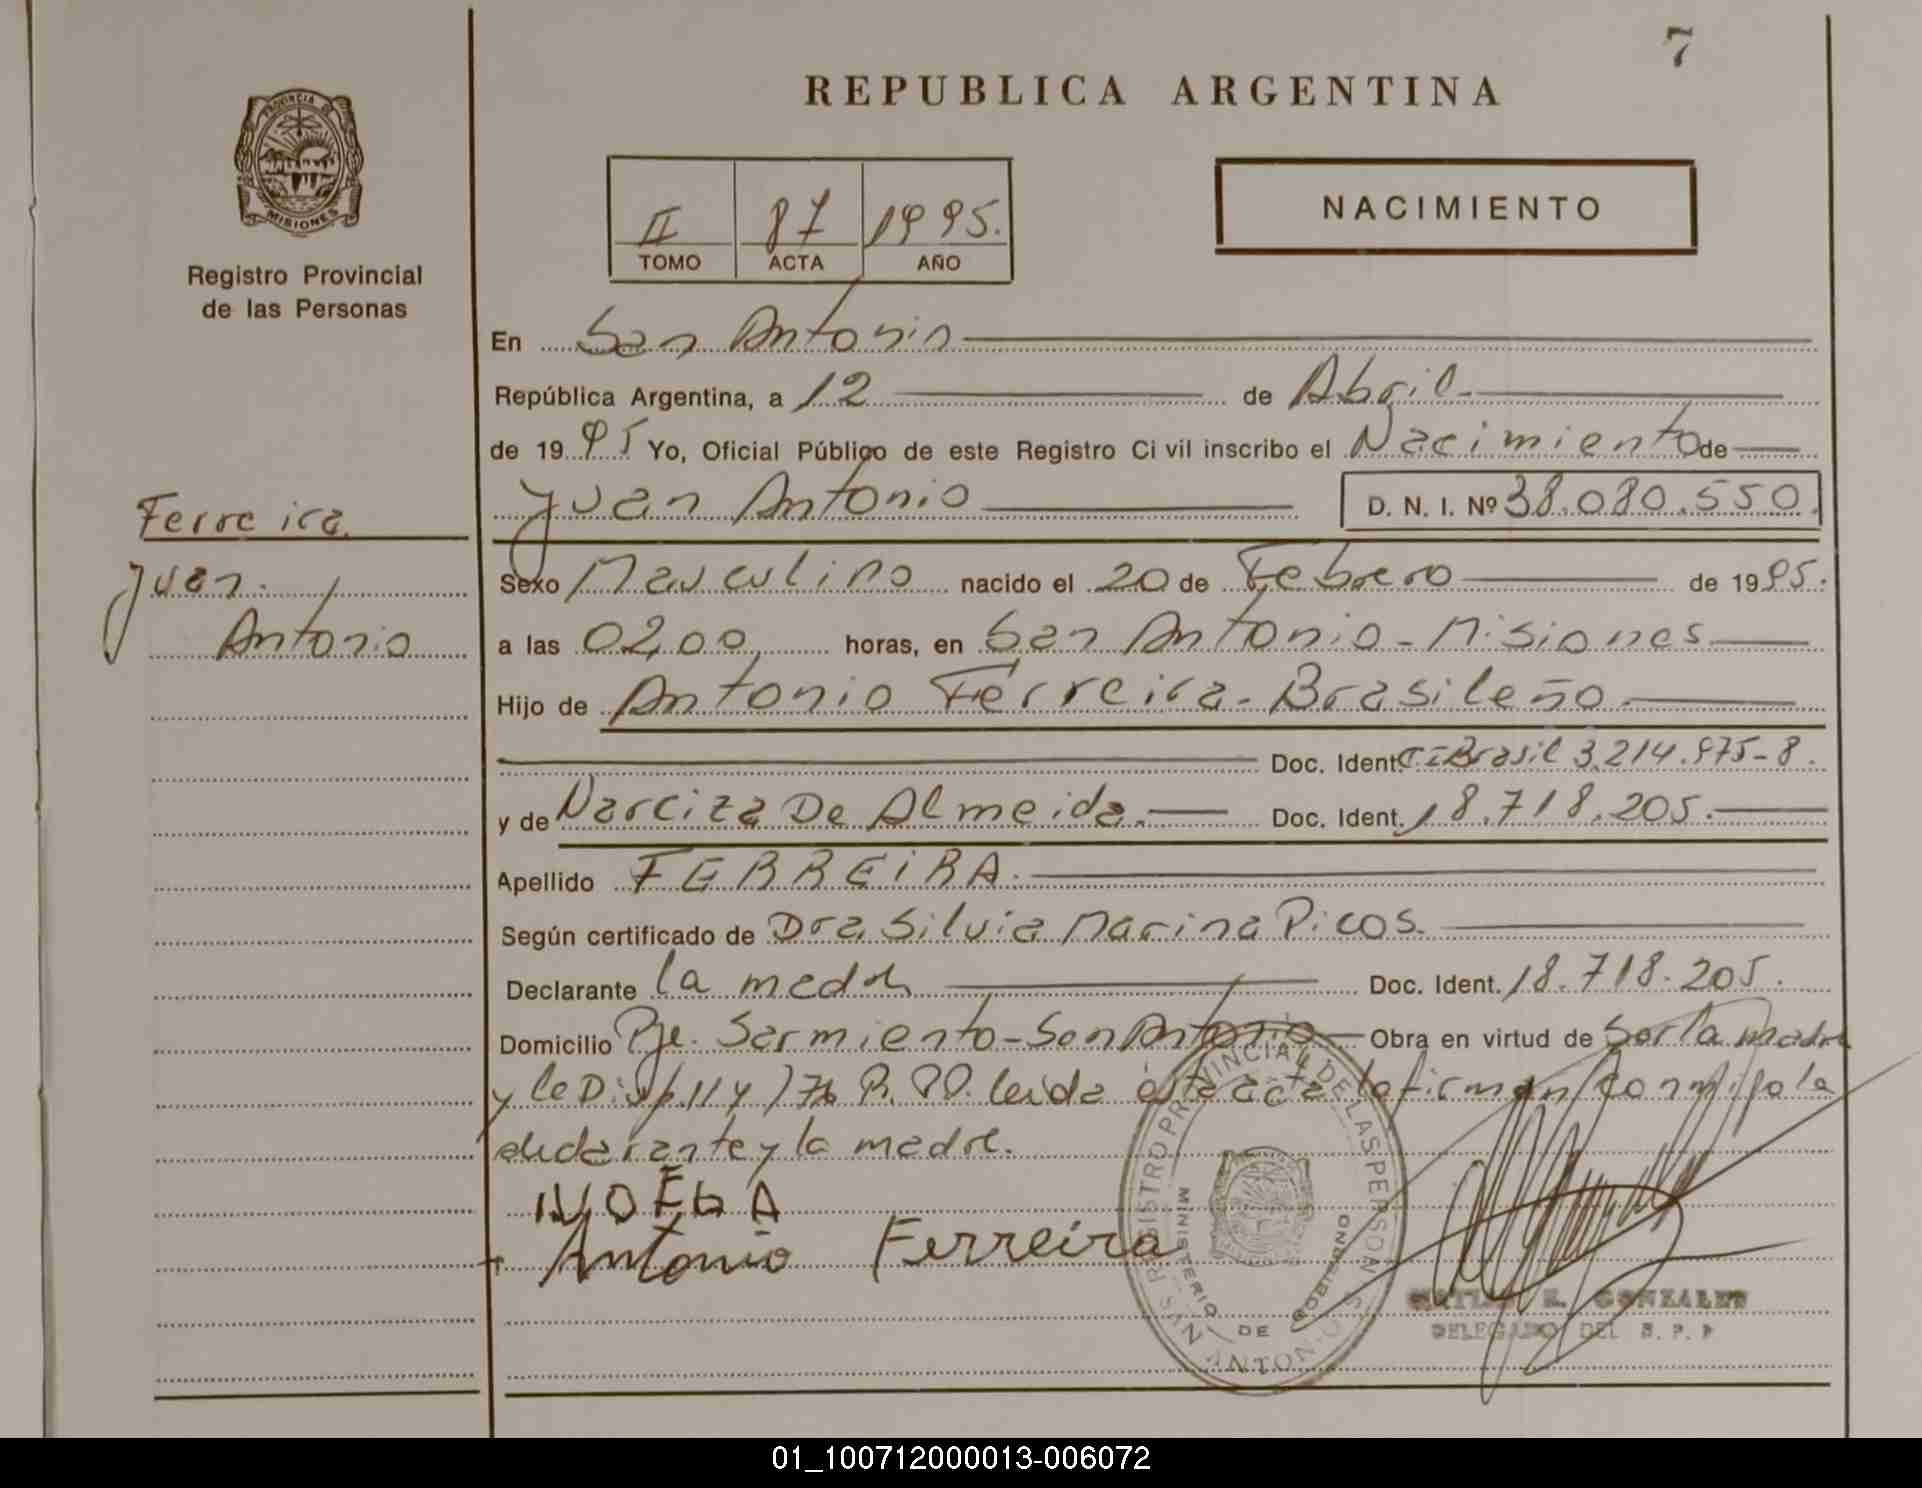 7
REPUBLICA ARGENTINA
PROVINCIA DE
MISIONES
Registro Provincial
de las Personas
II 87 1995.
TOMO ACTA AÑO
NACIMIENTO
En San Antonio
República Argentina, a 12 de Abril
de 1995 Yo, Oficial Público de este Registro Ci vil inscribo el Nacimiento de
Juan Antonio D. N. I. Nº 38.080.550.
Ferreira
Juan
Antonio
Sexo Masculino nacido el 20 de Febrero de 1995.
a las 02,00 horas, en San Antonio - Misiones
Hijo de Antonio Ferreira - Brasileño
Doc. Ident. CI Brasil 3.214.975-8.
y de Narciza De Almeida. Doc. Ident. 18.718.205.
Apellido FERREIRA.
Según certificado de Dra Silvia Marina Picos.
Declarante la madre Doc. Ident. 18.718.205.
Domicilio Pje. Sarmiento - San Antonio Obra en virtud de Ser la madre
y le leída esta acta la firman conmigo la
declarante y la madre.
Antonio Ferreira
REGISTRO PROVINCIAL DE LAS PERSONAS
MINISTERIO DE GOBIERNO
SAN ANTONIO
E. GONZALEZ
DELEGADO DEL R. P. P
01_100712000013-006072